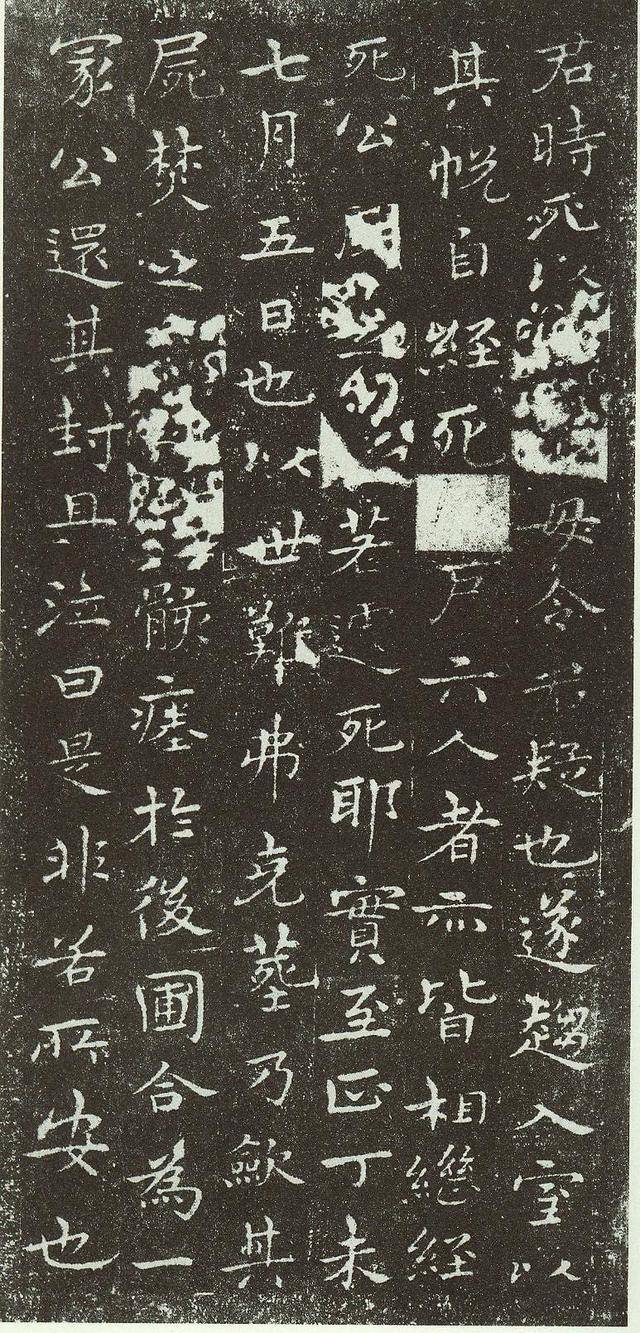 君時死以毋令君疑也遂趨入室以
其帨自經死戶六人者亦皆相繼經
死公若遽死耶實至正丁未
七月五日也以世難弗克塟乃歛其
屍焚之骸瘞於後圃合為一
冡公還其封且泣曰是非若所安也